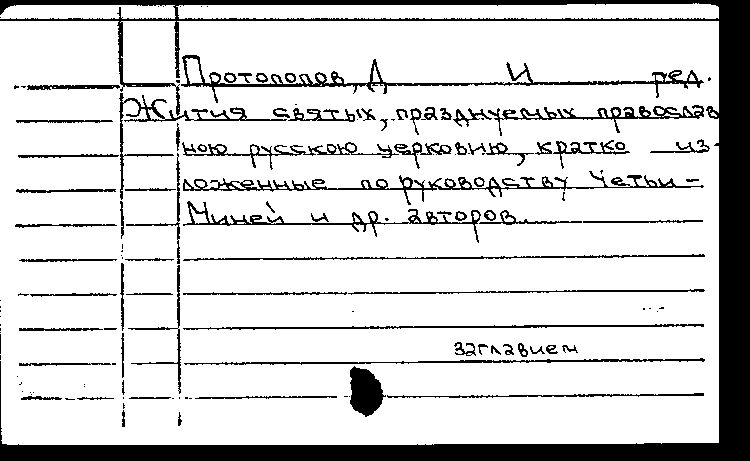 Протопопов, Д И ред.
Жития святых, празднуемых православ
ною русскою церковию, кратко из-
ложенные по руководству Четьи-
Миней и др. авторов.
заглавием